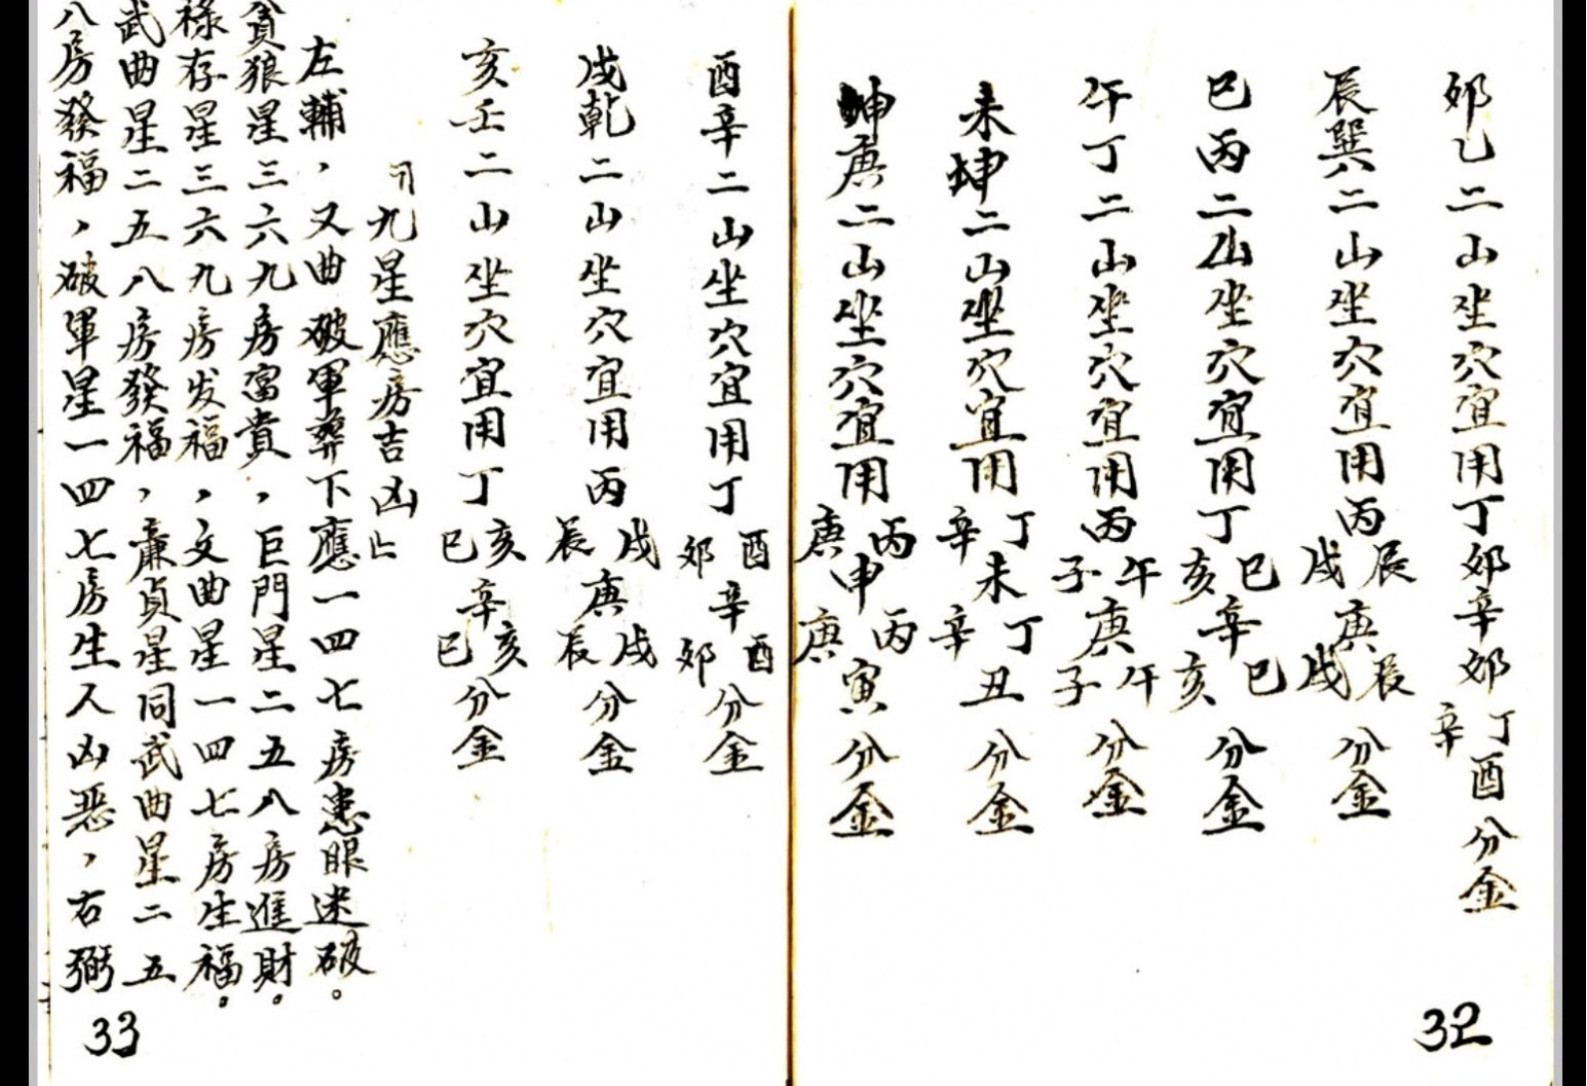 卯乙二山坐穴宜用丁卯辛卯丁酉辛酉分金
辰巽二山坐穴宜用丙辰戌庚辰戌分金
巳丙二山坐穴宜用丁巳亥辛巳亥分金
午丁二山坐穴宜用丙午子庚午子分金
未坤二山坐穴宜用丁辛未丁辛丑分金
坤庚二山坐穴宜用丙庚申丙庚寅分金
32
酉辛二山坐穴宜用丁酉卯辛酉卯分金
戌乾二山坐穴宜用丙戌辰庚戌辰分金
亥壬二山坐穴宜用丁亥巳辛亥巳分金
九星應房吉凶
左輔,又曲破軍葬下應一四七房患眼迷破。
貪狼星三六九房富貴,巨門星二五八房進財。
祿存星三六九房发福,文曲星一四七房生福。
武曲星二五八房發福,廉貞星同武曲星二五
八房發福,破軍星一四七房生人凶惡,右弼
33